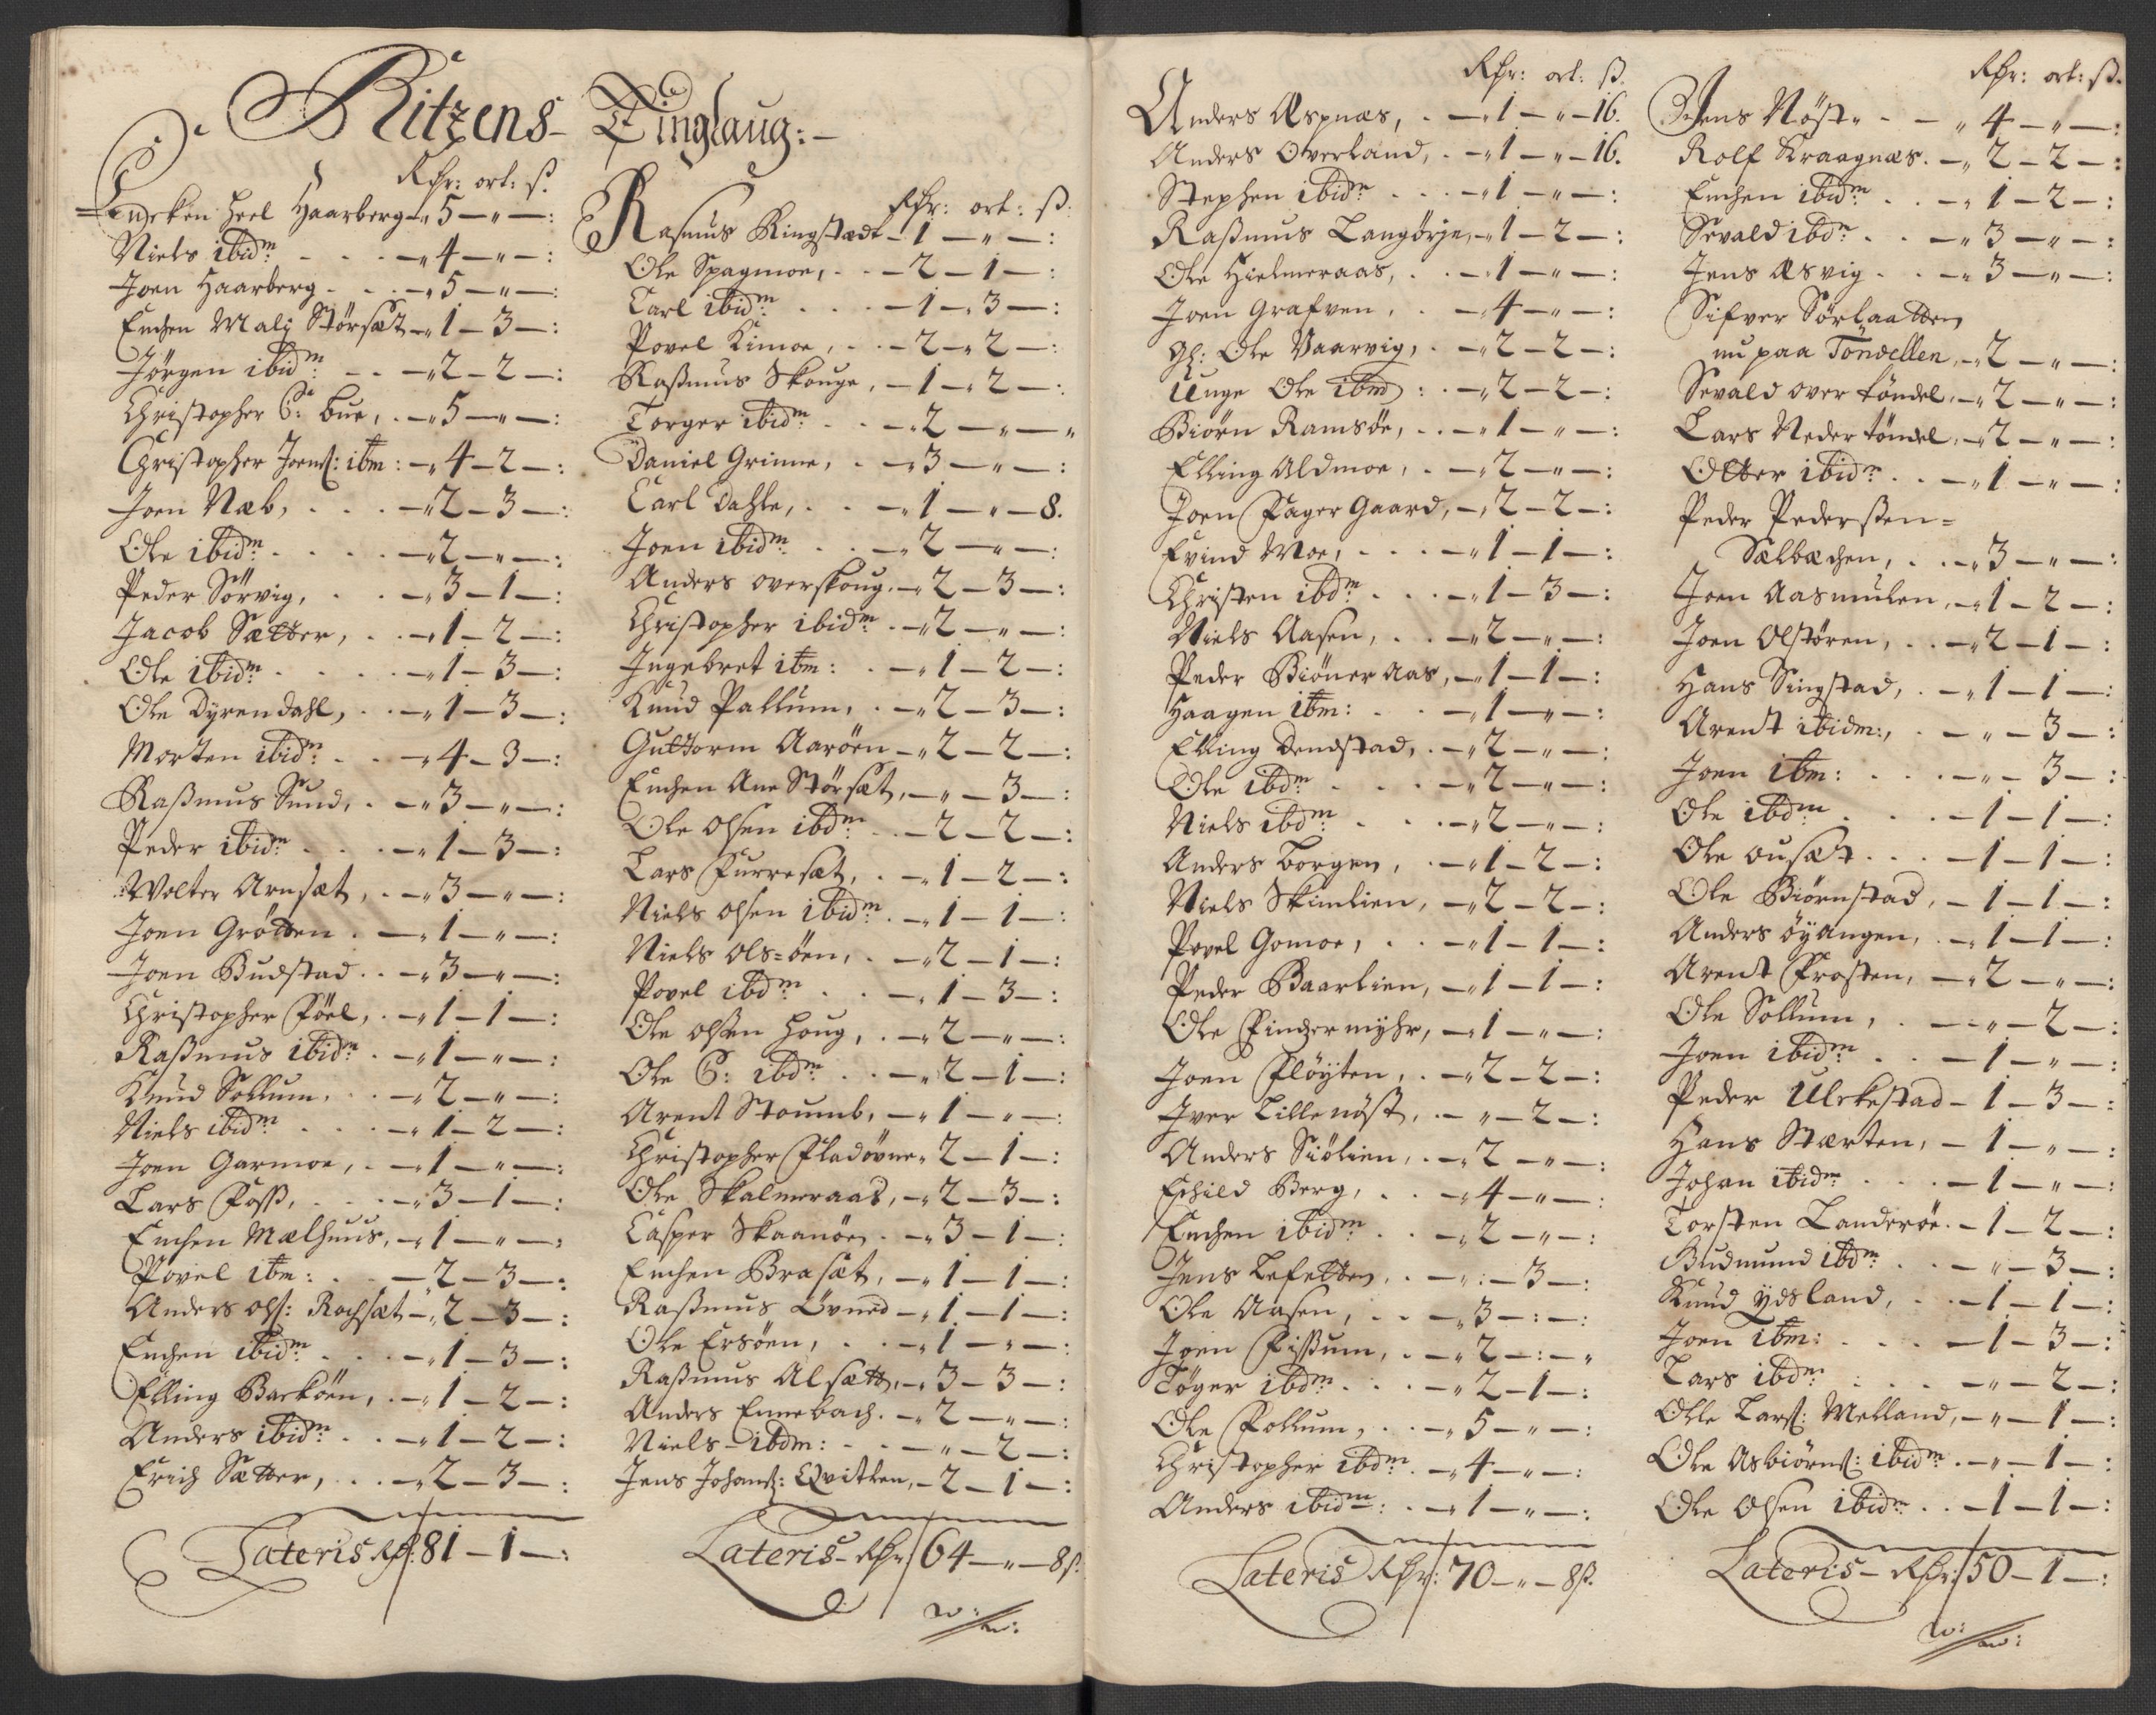 Ritzens- Tinglaug:-
Rhr: ort: ß.
Encken Heel Haarberg -„ 5 - „ - :
Niels ibidm - „ 4 - „ - :
Joen Haarberg - „ 5 - „ - :
Enchen Malj Störsæt - „ 1 - 3 - :
Jörgen ibidm - „ 2 - 2 - :
Christopher C: bue, - „ 5 - „ - :
Christopher Joenß: ibm: - „ 4 - 2 - :
Joen Næb, - „ 2 - 3 - :
Ole ibidm - „ 2 - „ - :
Peder Sörvig, - „ 3 - 1 - :
Jacob Sætter, - „ 1 - 2 - :
Ole ibidm - „ 1 - 3 - :
Ole Dÿrendahl, - „ 1 - 3 - :
Morten ibidm - „ 4 - 3 - :
Raßmus Sund, - „ 3 - „ - :
Peder ibidm - „ 1 - 3 - :
Wolter Arnsæt, - „ 3 - „ - :
Joen Grötten - „ 1 - „ - :
Joen Budstad - „ 3 - „ - :
Christopher Föel, - „ 1 - 1 - :
Raßmus ibidm - „ 1 - „ - :
Knud Sollum, - „ 2 - „ - :
Niels ibidm - „ 1 - 2 - :
Joen Garmoe, - „ 1 - „ - :
Lars Foss, - „ 3 - 1 - :
Enchen Mælhuus, - „ 1 - „ - :
Povel ibm: - 2 - 3 - :
Anders olß: Rochsæt - „ 2 - 3 - :
Enchen ibidm - „ 1 - 3 - :
Elling Barköen, - „ 1 - 2 - :
Anders ibidm - „ 1 - 2 - :
Erich Sætter, - „ 2 - 3 - :
Lateris Rhr: 81 - 1 - :
Rhr: ort: ß:
Rasmus Ringstædt - 1 - „ - :
Ole Spagmoe, - 2 - 1 - :
Carl ibidm - 1 - 3 - :
Povel Kimoe, - 2 - „ 2 - :
Raßmus Skouge, - 1 - „ 2 - :
Torger ibidm - „ 2 - „ - „
Daniel Grinne, - „ 3 - „ - :
Carl Dahle, - „ 1 - „ - 8.
Joen ibidm - „ 2 - „ - :
Anders overskoug, - „ 2 - 3 - :
Christopher ibidm - „ 2 - „ - :
Ingebret ibm: - „ 1 - 2 - :
Knud Pallum, - „ 2 - 3 - :
Guttorm Aaröen - „ 2 - 2 - :
Enchen Ane Störsæt, - „ - 3 - :
Ole olsen ibdm - 2 - 2 - :
Lars Furresæt, - „ 1 - 2 - :
Niels olsen ibidm - „ 1 - 1 - :
Niels ols=öen, - „ 2 - 1 - :
Povel ibdm - „ 1 - 3 - :
Ole olsen houg, - „ 2 - „ - :
Ole C: ibdm - „ 2 - 1 - :
Arent Stoumb, - „ 1 - „ - :
Christopher Fladövne „ 2 - 1 - :
Ole Skalmeraas, - „ 2 - 3 - :
Casper Skaanöe - „ 3 - 1 - :
Enchen Brasæt, - „ 1 - 1 - :
Raßmus Lövned - „ 1 - 1 - :
Ole Ersöen, - „ 1 - „ - :
Raßmus Alsætt, - „ 3 - 3 - :
Anders Ennebach - „ 2 - „ - :
Niels - ibdm: - „ - 2 - :
Jens Johanß: Qvitlen, - 2 - 1 - :
Lateris - Rhr: 64 - „ - 8ß.
Rhr: ort: ß.
Anders Æspnæs, - „ 1 - „ - 16.
Anders Overland, - „ 1 - „ - 16.
Stephen ibidm - „ 1 - „ - :
Raßmus Langörje, - „ 1 - 2 - :
Ole Hielmeraas, - „ 1 - „ - :
Joen Grafven, - „ 4 - „ - :
Gl: Ole Vaarvig, - „ 2 - 2 - :
Unge Ole ibm: - „ 2 - 2 - :
Biörn Ramsöe, - „ 1 - „ - :
Elling Aldmoe, - „ 2 - „ - :
Joen Fager Gaard, - „ 2 - 2 - :
Evind Moe, - „ 1 - 1 - :
Christen ibdm - „ 1 - 3 - :
Niels Aasen, - „ 2 - „ - :
Peder Biöneraas, - „ 1 - 1 - :
Haagen ibm: - „ 1 - „ - :
Elling Dendstad, - „ 2 - „ - :
Ole ibdm - „ 2 - „ - :
Niels ibdm - „ 2 - „ - :
Anders Borgen, - „ 1 - 2 - :
Niels Skimlien, - „ 2 - 2 - :
Povel Gomoe, - „ 1 - 1 - :
Peder Baarlien, - „ 1 - 1 - :
Ole Findermyhr, - „ 1 - „ - :
Joen Flöyten, - „ 2 - 2 - :
Iver Lillenöst, - „ - 2 - :
Anders Siölien, - „ 2 - „ - :
Eschild Berg, - „ 4 - „ - :
Enchen ibidm - „ 2 - „ - :
Jens Lefetten, - „ - 3 - :
Ole Aasen, - „ 3 - : - :
Joen Fissum, - „ 2 - : - „
Töger ibdm - „ 2 - 1 - :
Ole Sollum, - „ 5 - „ - :
Christopher ibdm - „ 4 - „ - :
Anders ibidm: - „ 1 - „ - :
Lateris Rhr: 70 - „ - 8ß.
Rhr: ort: ß.
Jens Nöst - „ 4 - „ - :
Rolf Kraagnæs - „ 2 - 2 - :
Enchen ibidm - „ 1 - 2 - :
Sevald ibdm - „ 3 - „ - :
Jens Æsvig - „ 3 - „ - :
Sifver Sörlaatten
nu paa Töndellen, - „ 2 - „ - :
Sevald over töndel, - „ 2 - „ - :
Lars Neder töndel, - „ 2 - „ - :
Otter ibidm - „ 1 - „ - :
Peder Pederßen=
Sælbæchen, - „ 3 - „ - :
Joen Aasmulen, - „ 1 - 2 - :
Joen Olstören, - „ 2 - 1 - :
Hans Singstad, - „ 1 - 1 - :
Arent ibidm:, - „ - 3 - :
Joen ibm: - „ - 3 - :
Ole ibdm - 1 - 1 - :
Ole ousæt - 1 - 1 - :
Ole Biörnstad, - 1 - 1 - :
Anders öÿangen, - „ 1 - 1 - :
Arent Frosten, - „ 2 - „ - :
Ole Sollum, - „ - 2 - :
Joen ibidm - 1 - „ - :
Peder Ulckestad - 1 - 3 - :
Hans Stærten, - 1 - „ - :
Johan ibidm - 1 - „ - :
Torsten Landeröe - 1 - 2 - :
Gudmund ibdm - „ - 3 - :
Knud ydsland, - 1 - 1 - :
Joen ibm: - 1 - 3 - :
Lars ibdm - „ - 2 - :
Olle Larß: Melland, - „ - 1 - :
Ole Asbiörnß: ibidm - „ - 1 - :
Ole Olsen ibidm - 1 - 1 - :
Lateris - Rhr: 50 - 1 - :